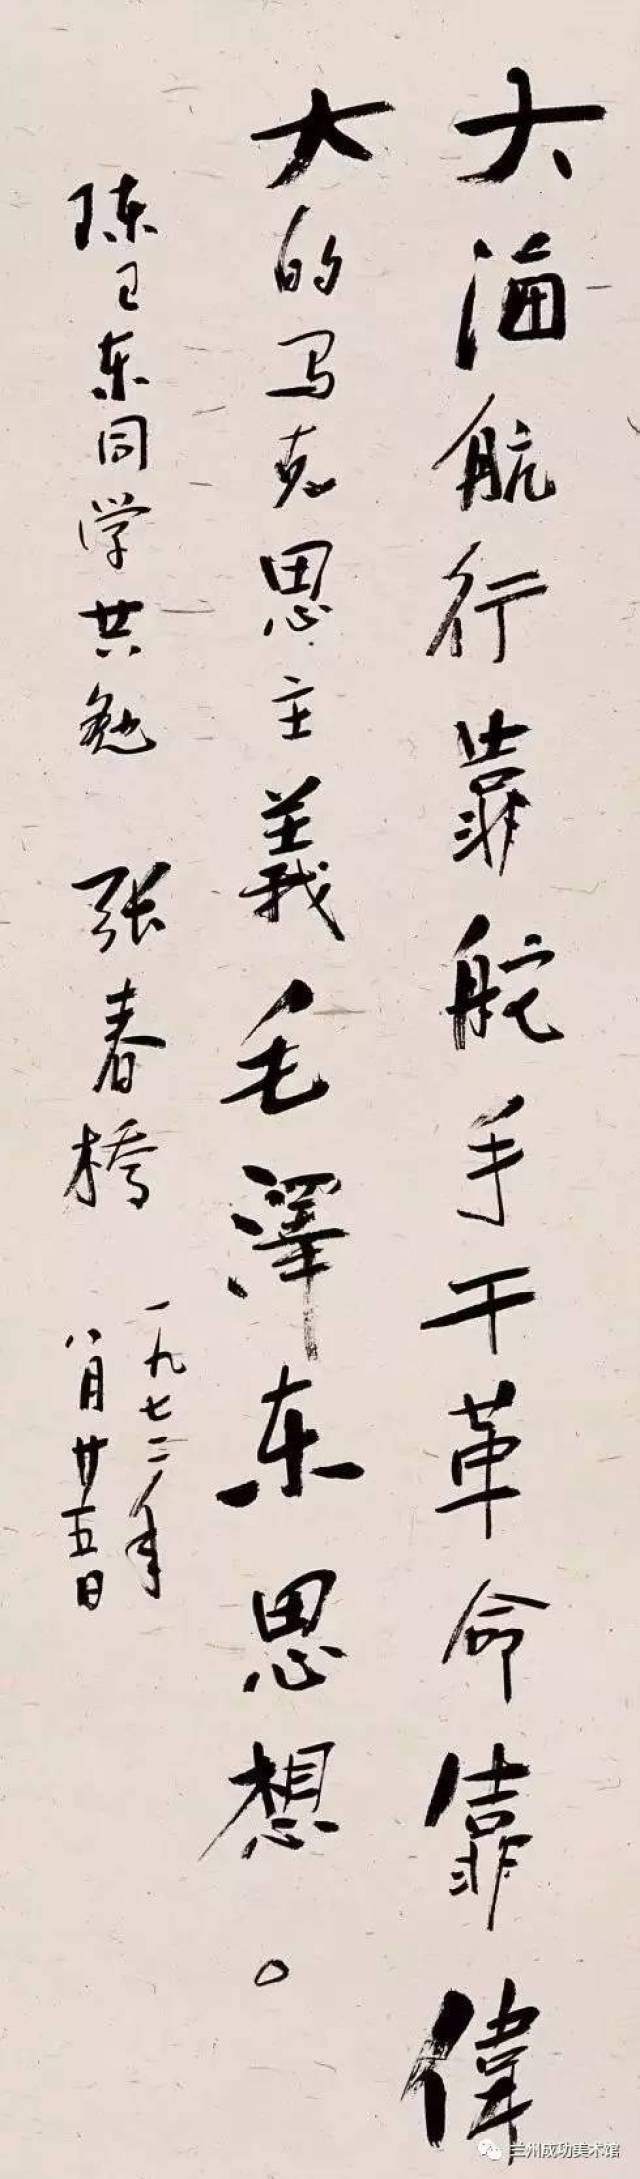 大海航行靠舵手干革命靠偉
大的马克思主義毛澤东思想。
陈卫东同学共勉 张春橋
一九七二年
八月廿五日
兰州成功美术馆